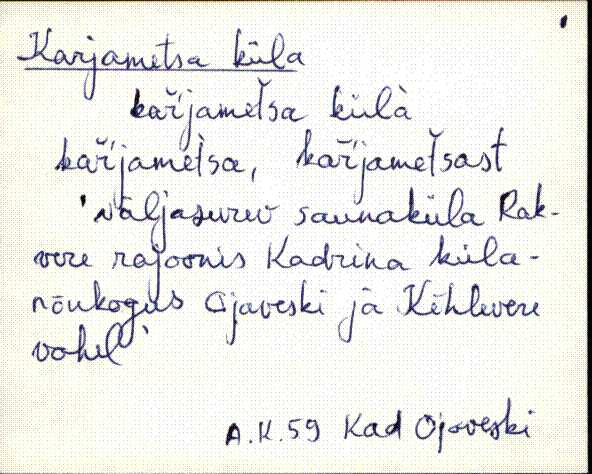 Karjametsa küla
kaŕjametsa külà
kaŕjametsa, kaŕjametsast
'väljasurev saunaküla Rak-
vere rajoonis Kadrina küla-
nõukogus Ojaveski ja Kõhlevere
vahel'
A.K.59 Kad Ojaveski